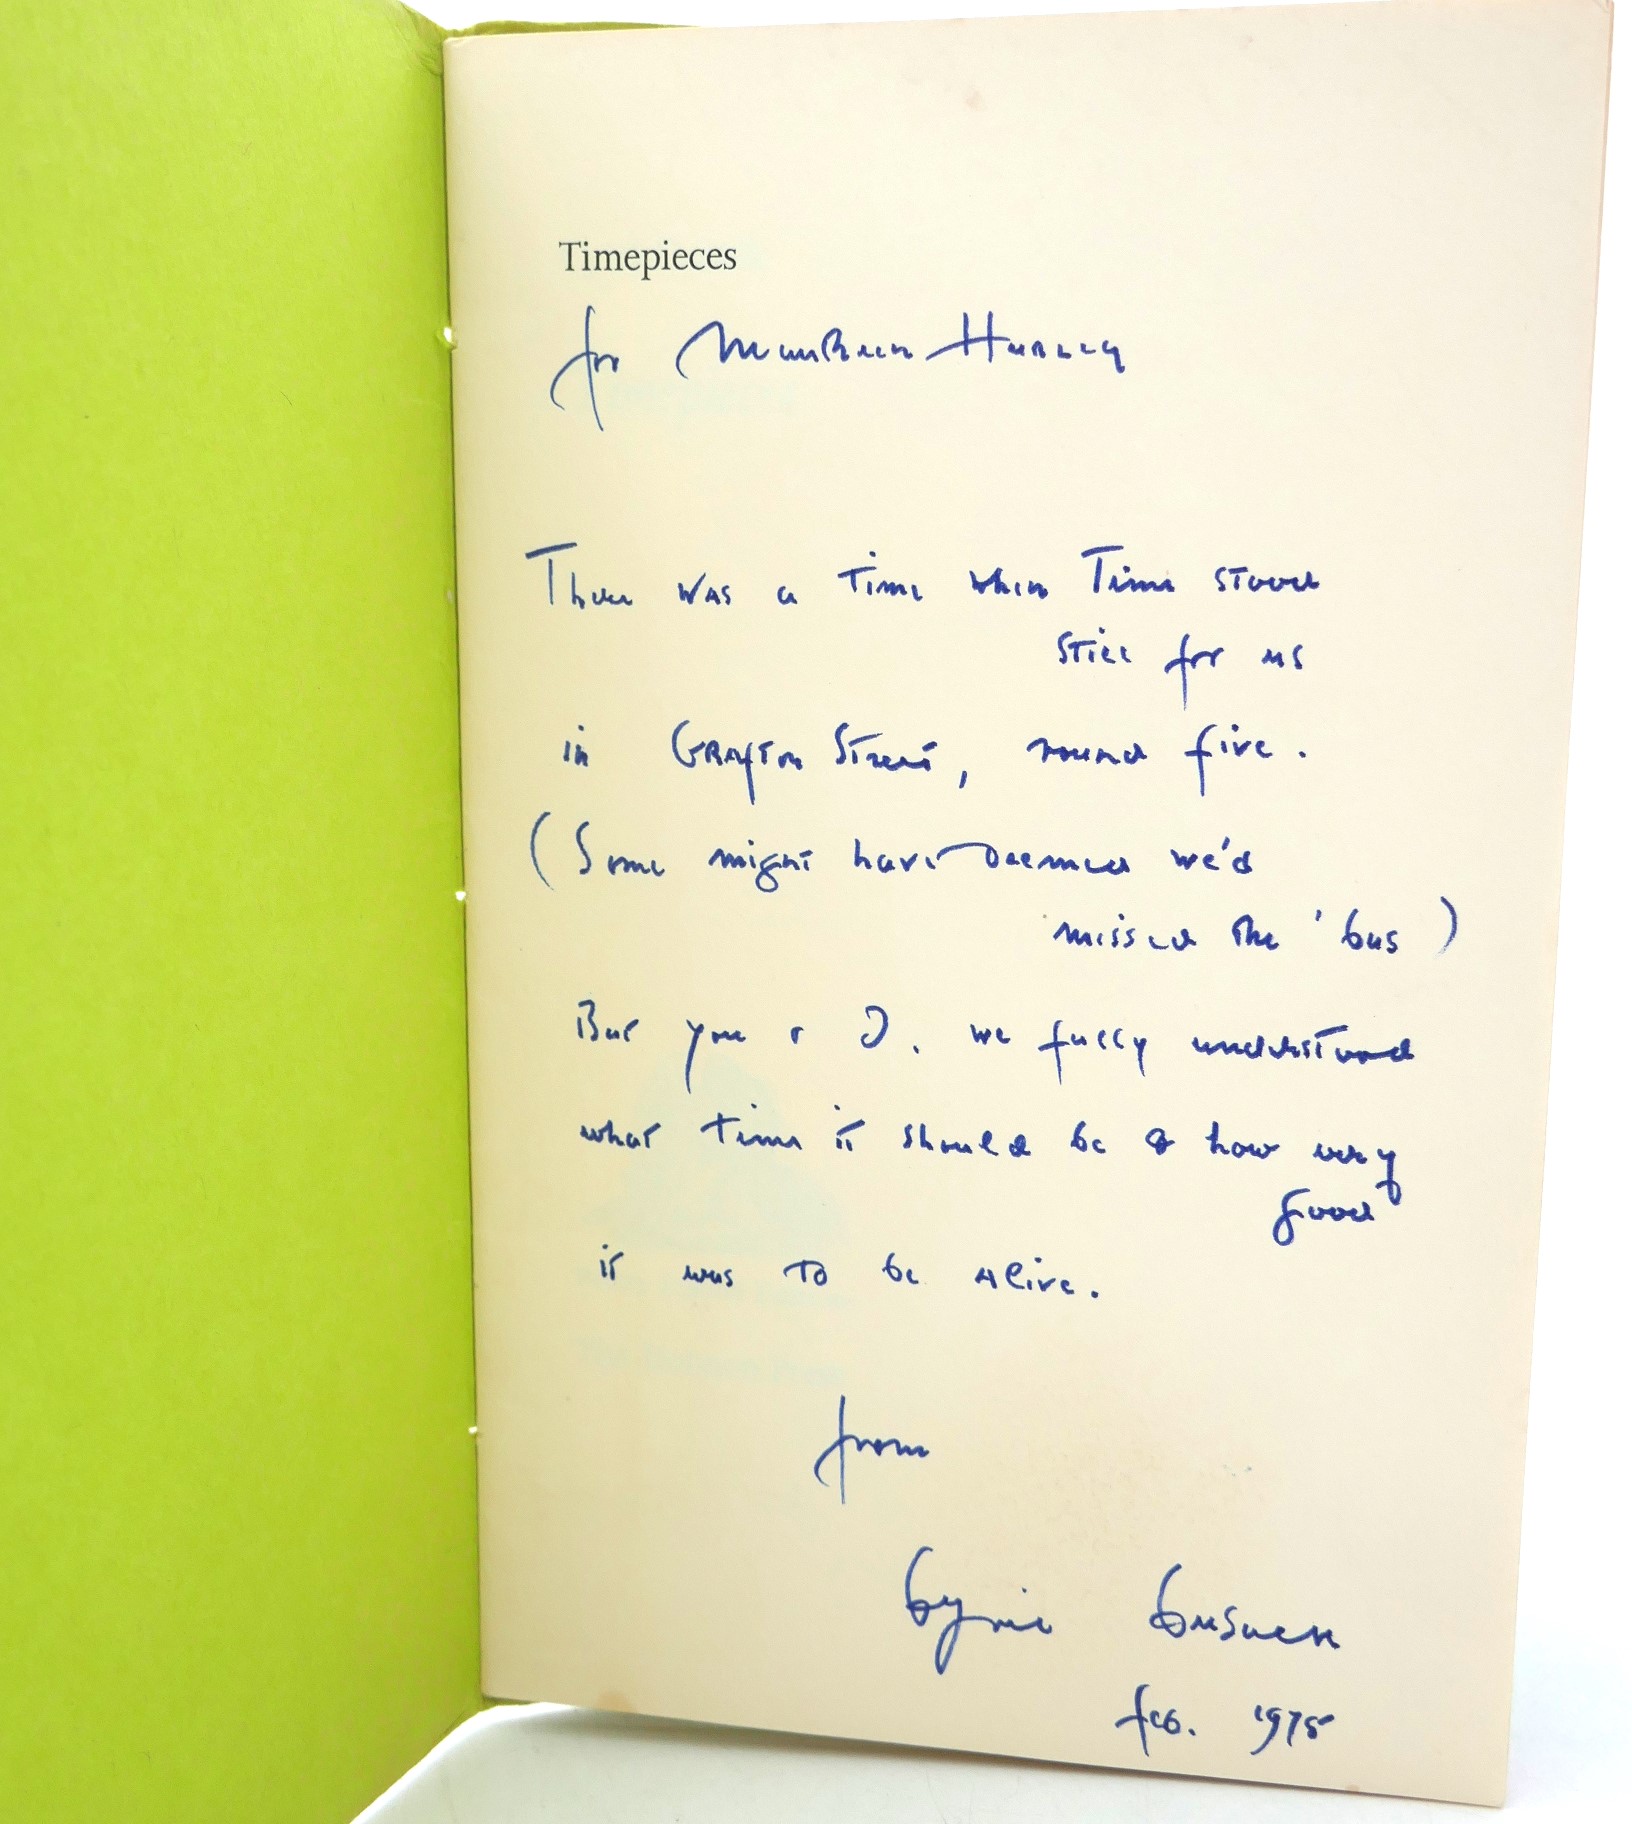 Timepieces
for Maureen Hurley
There was a time when Time stood
still for us
in Grafton Street, round five.
(Some might have deemed we'd
missed the 'bus)
But you & I, we fully understood
what time it should be & how very
good
it was to be alive.
from
Cyril Cusack
Feb. 1975